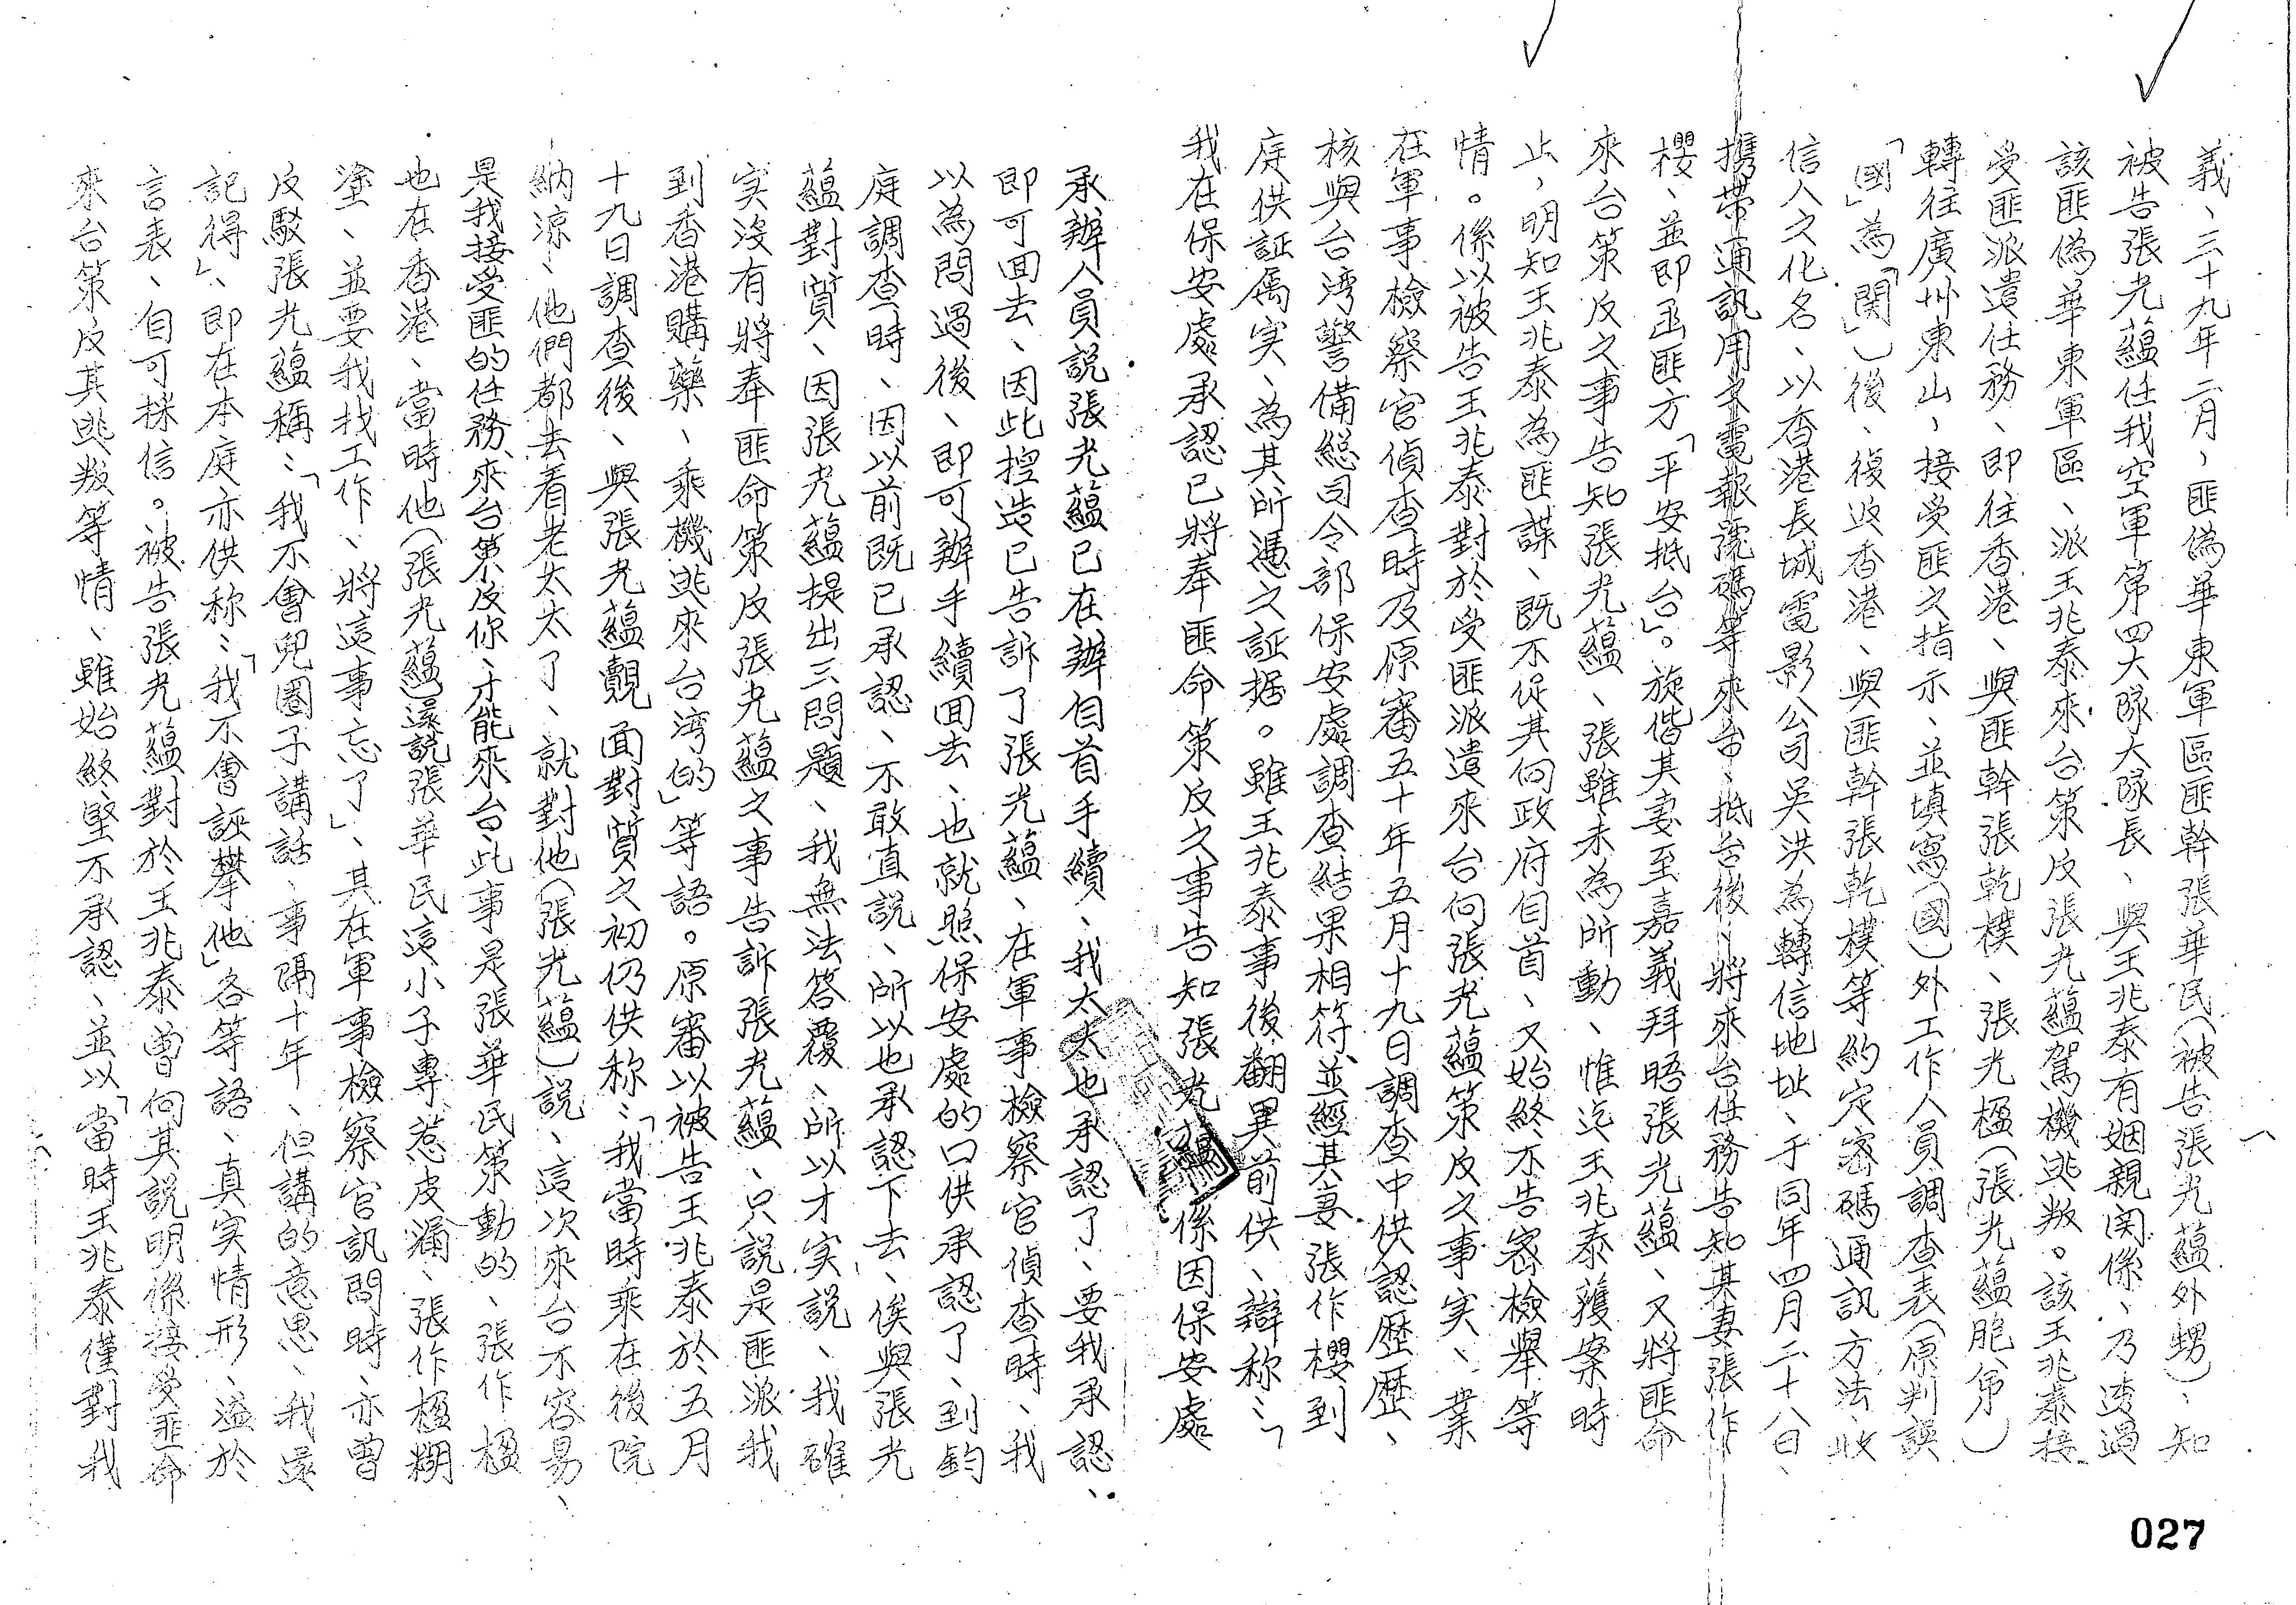 義、三十九年二月、匪偽華東軍區匪幹張華民(被告張光蘊外甥)、知
被告張光蘊任我空軍第四大隊大隊長、與王兆泰有姻親関係、乃透過
該匪偽華東軍區、派王兆泰來台策反張光蘊駕機逃叛。該王兆泰接
受匪派遣任務、即往香港、與匪幹張乾樸、張光楹(張光蘊胞弟)
轉往廣州東山、接受匪之指示、並填寫(國)外工作人員調查表(原判誤
「國」為「関」)後、復返香港、與匪幹張乾樸等約定密碼通訊方法、收
信人之化名、以香港長城電影公司吳洪為轉信地址、于同年四月二十八日、
携帶通訊用之電報號碼等來台、抵台後、將來台任務告知其妻張作
櫻、並即函匪方「平安抵台」。旋偕其妻至嘉義拜晤張光蘊、又將匪命
來台策反之事告知張光蘊、張雖未為所動、惟迄王兆泰獲案時
止，明知王兆泰為匪諜、既不促其向政府自首、又始終不告密檢舉等
情。係以被告王兆泰對於受匪派遣來台向張光蘊策反之事实、業
在軍事檢察官偵查時及原審五十年五月十九日調查中供認歷歷、
核與台湾警備総司令部保安處調查結果相符並經其妻張作櫻到
庭供証属实、為其所憑之証据。雖王兆泰事後翻異前供、辯称：「
我在保安處承認已將奉匪命策反之事告知張光蘊係因保安處
承辦人員説張光蘊已在辦自首手續、我太太也承認了、要我承認、
即可回去、因此揑造已告訴了張光蘊、在軍事檢察官偵查時、我
以為問過後、即可辦手續回去、也就照保安處的口供承認了、到鈞
庭調查時、因以前既已承認、不敢直説、所以也承認下去、俟與張光
蘊對質、因張光蘊提出三問題、我無法答覆、所以才实説、我確
实没有將奉匪命策反張光蘊之事告訴張光蘊、只説是匪派我
到香港購藥、乘機逃來台湾的」等語。原審以被告王兆泰於五月
十九日調查後、與張光蘊覿面對質之初仍供称：「我當時乘在後院
納涼、他們都去看老太太了、就對他(張光蘊)説、這次來台不容易、
是我接受匪的任務、來台策反你、才能來台此事是張華民策動的、張作楹
也在香港、當時他(張光蘊)還説張華民這小子專惹皮漏、張作楹糊
塗、並要我找工作、將這事忘了」、其在軍事檢察官訊問時、亦曾
反駁張光蘊稱：「我不會兜圈子講話、事隔十年、但講的意思、我還
記得」、即在本庭亦供称：「我不會誣攀他」各等語、真实情形、溢於
言表、自可採信。被告張光蘊對於王兆泰曾向其説明係接受匪命
來台策反其逃叛等情、雖始終堅不承認、並以「當時王兆泰僅對我
027